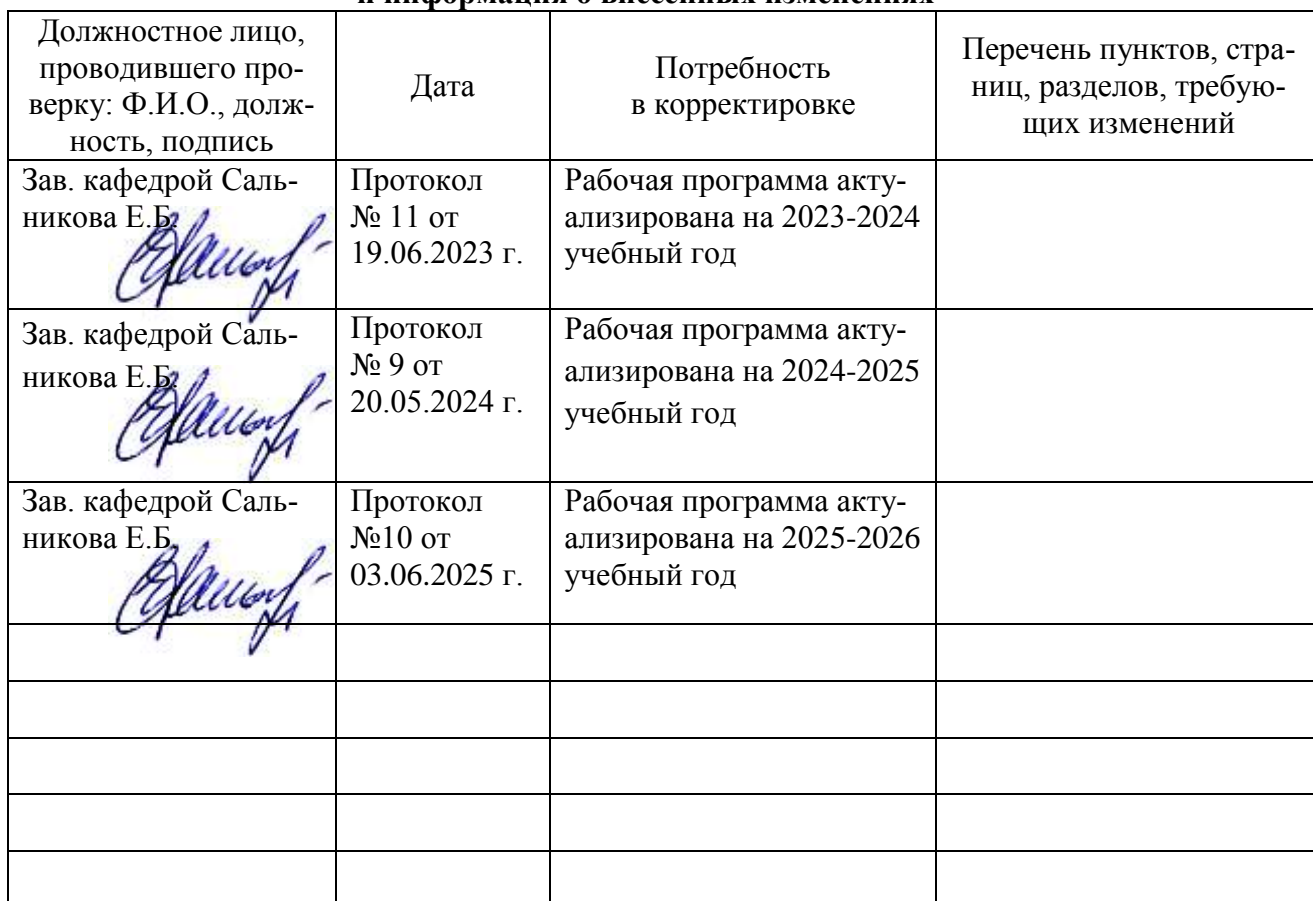 и информация о внесенных изменениях
Должностное лицо,
проводившего про-
верку: Ф.И.О., долж-
ность, подпись
Дата
Потребность
в корректировке
Перечень пунктов, стра-
ниц, разделов, требую-
щих изменений
Зав. кафедрой Саль-
никова Е.Б.
Протокол
№ 11 от
19.06.2023 г.
Рабочая программа акту-
ализирована на 2023-2024
учебный год
Зав. кафедрой Саль-
никова Е.Б.
Протокол
№ 9 от
20.05.2024 г.
Рабочая программа акту-
ализирована на 2024-2025
учебный год
Зав. кафедрой Саль-
никова Е.Б.
Протокол
№10 от
03.06.2025 г.
Рабочая программа акту-
ализирована на 2025-2026
учебный год